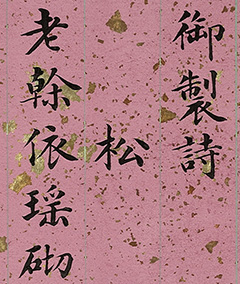 御製詩
松
老榦依瑶砌